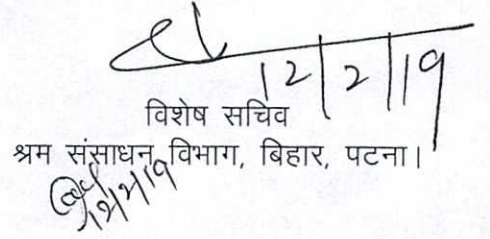 12/2/19
विशेष सचिव
श्रम संसाधन विभाग, बिहार, पटना।